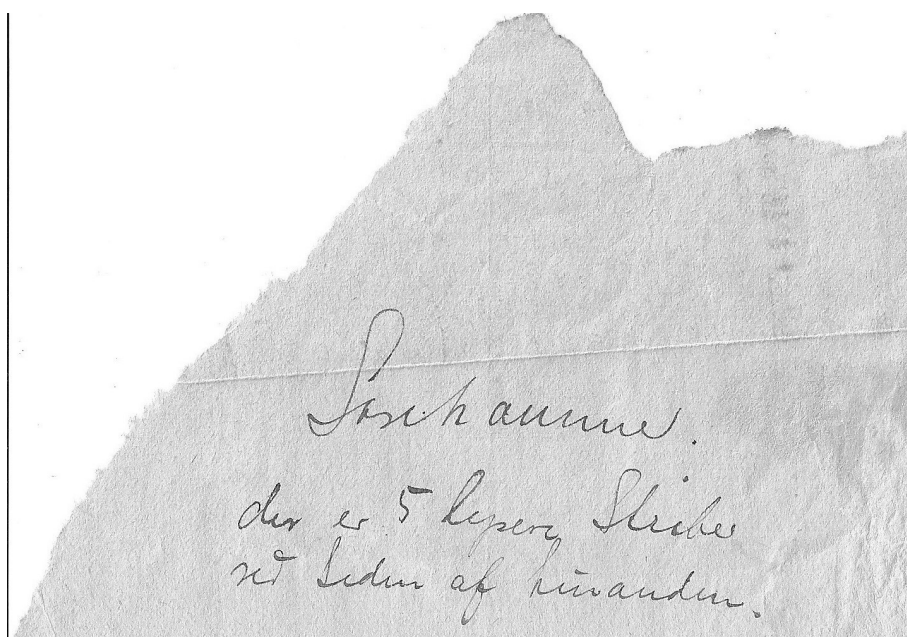 Sovekammer.
der er 5 lysere Striber
ved Siden af hinanden.